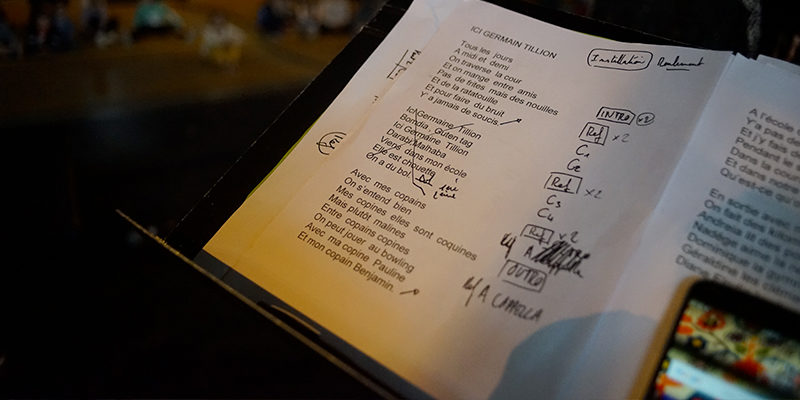 ICI GERMAIN TILLION
Tous les jours
A midi et demi
On traverse la cour
Et on mange entre amis
Pas de frites mais des nouilles
Et de la ratatouille
Et pour faire du bruit
Y'a jamais de soucis.
Ici Germaine Tillion
Bondia, Guten tag
Ici Germaine Tillion
Darabi Malhaba
Viens dans mon école
Elle est chouette
On a du bol.
Avec mes copains
On s'entend bien
Mes copines elles sont coquines
Mais plutôt malines
Entre copains copines
On peut jouer au bowling
Avec ma copine Pauline
Et mon copain Benjamin.
Installation Roulement
INTRO x2
Ref x2
C1
C2
Ref x2
C3
C4
Ref x2
OUTRO
A CAPPELLA
A l'école
Y'a pas de
Et j'y fais
Pendant
Dans la cour
Et dans
Qu'est-ce qu
En sortie
On fait
Andreia
Nadège